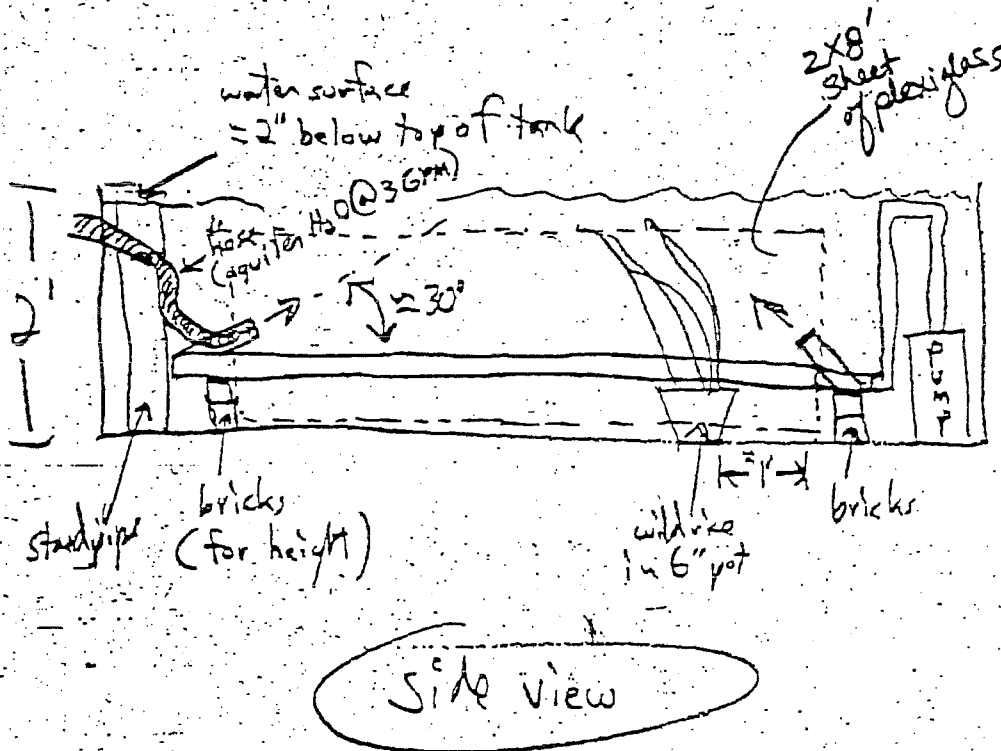 water surface
≈ 2" below top of tank
2X8'
sheet
of plexiglass
hose
(aquifer H20 @ 3 GPM)
≈ 30°
2'
PUMP
≈ 1'
standpipe
bricks
(for height)
wildrice
in 6" pot
bricks
Side view